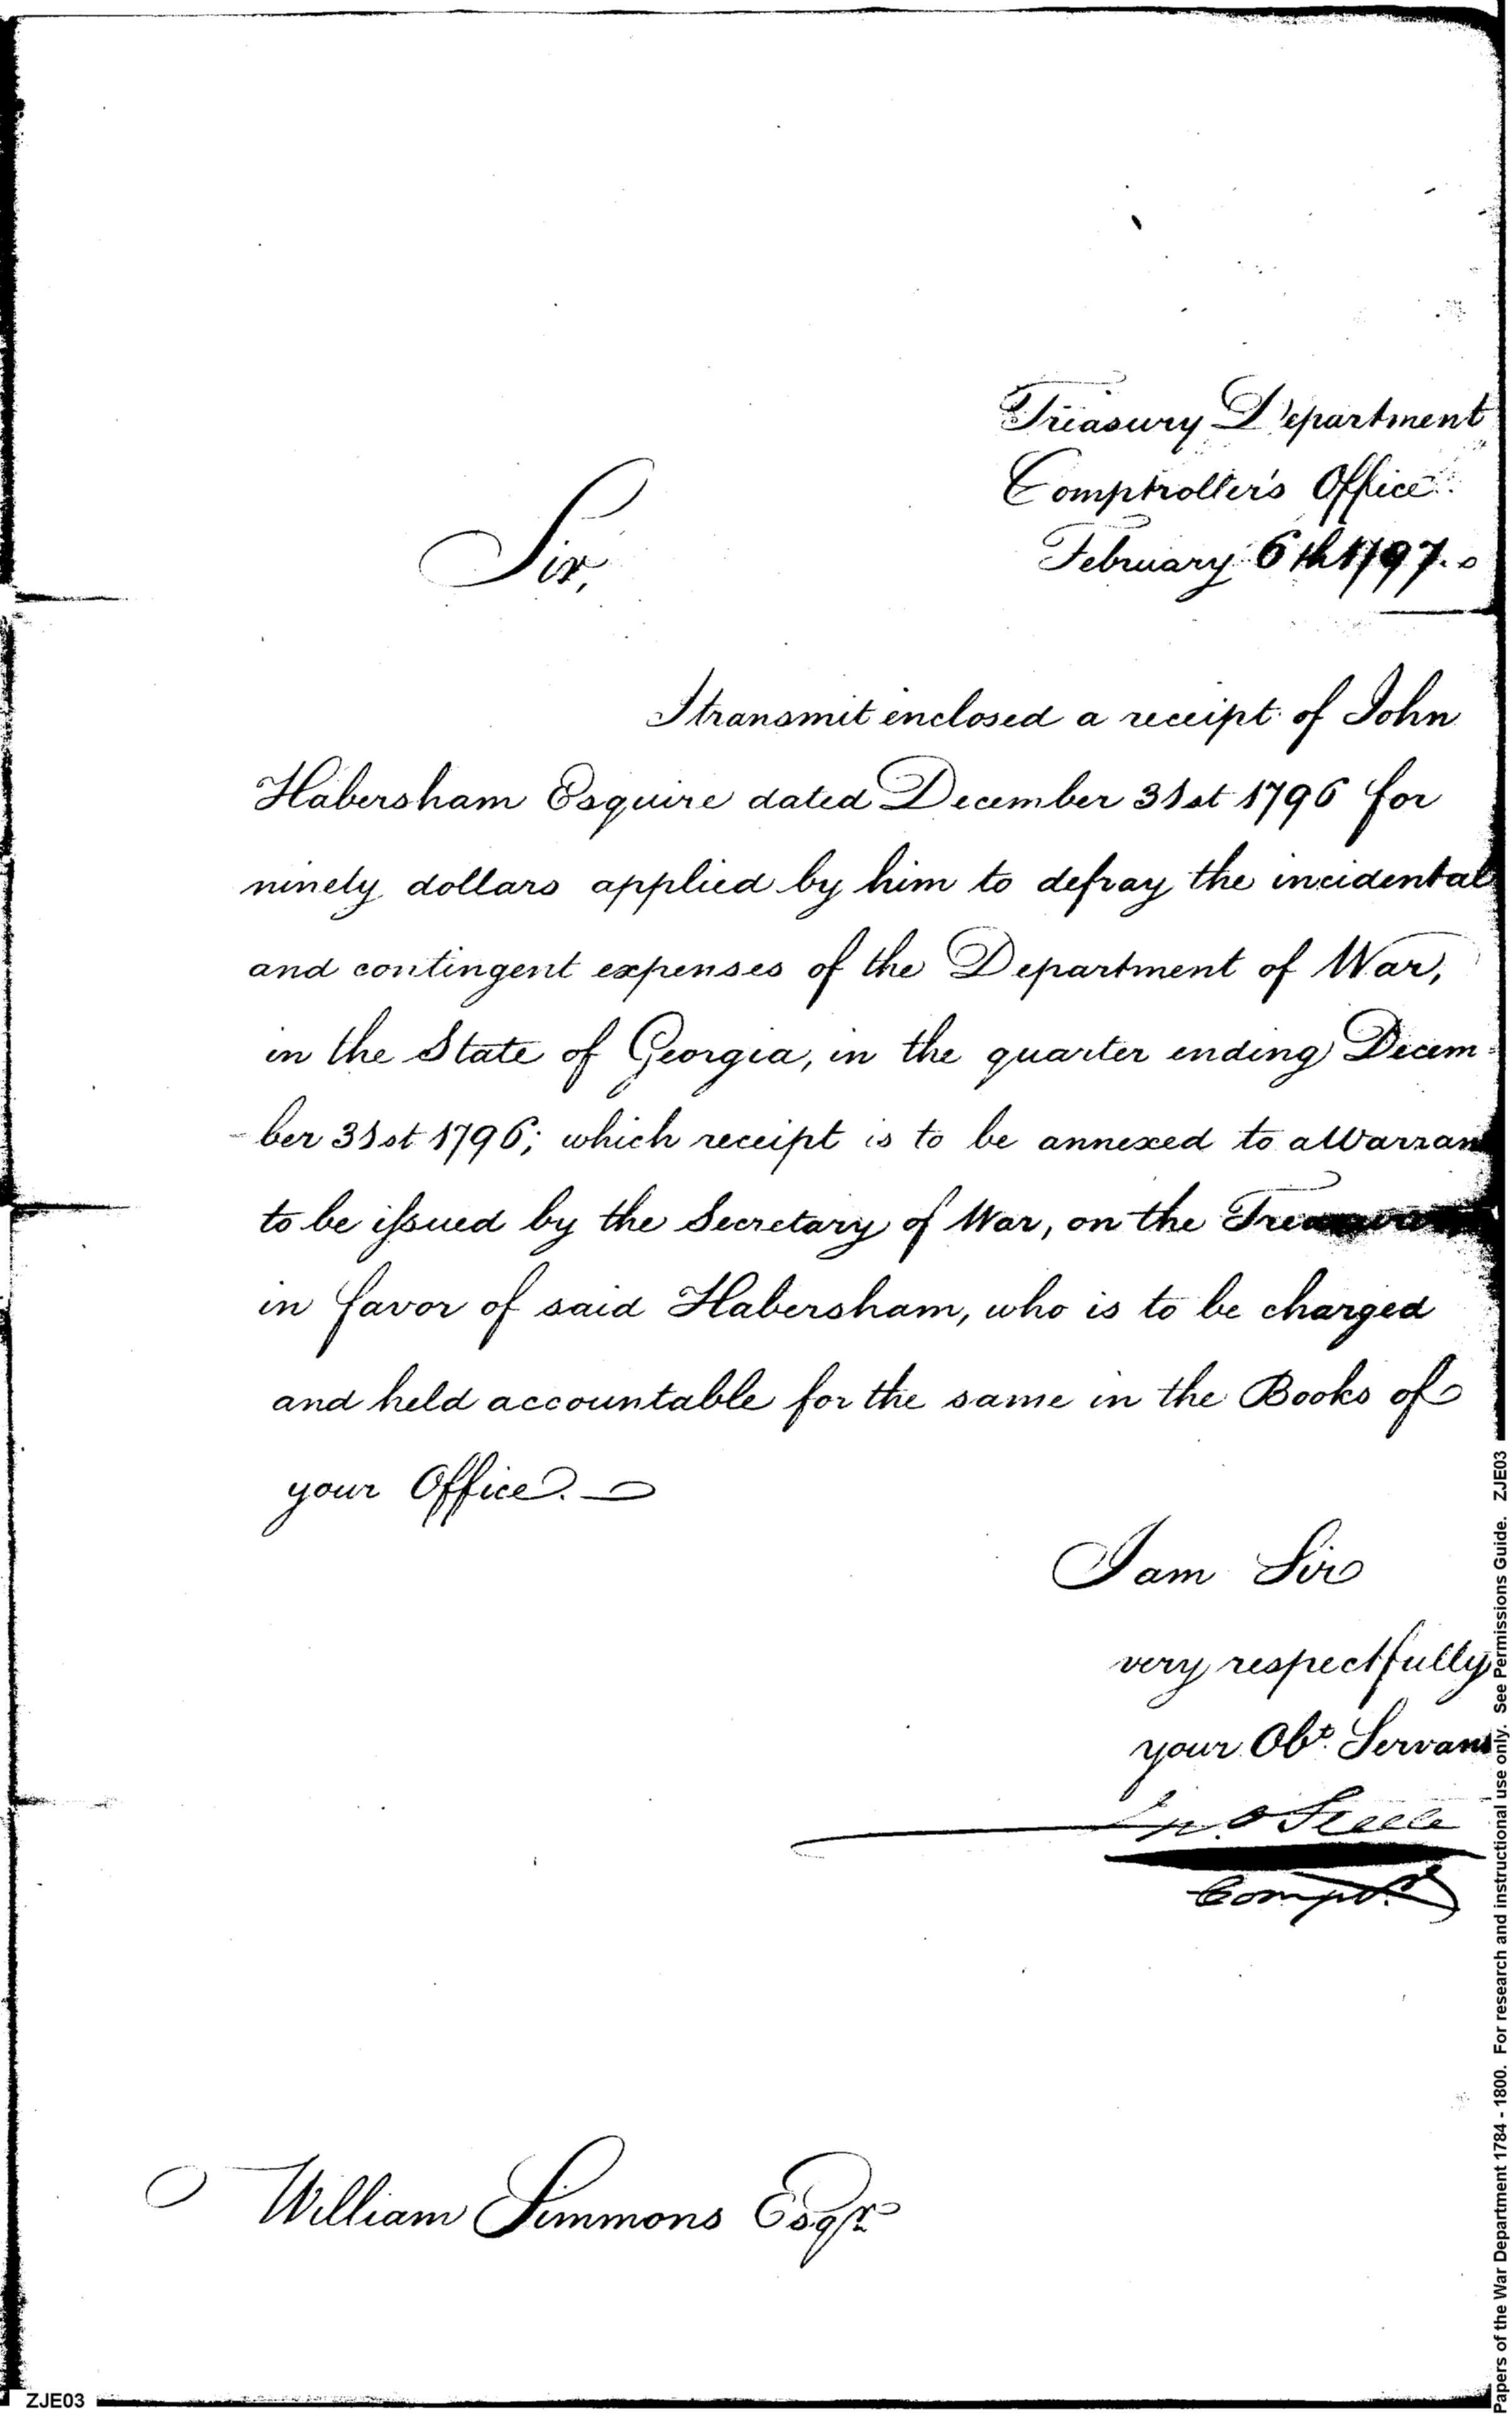 Treasury Department
Comptroller's Office
February 6th 1797.
Sir,
I transmit enclosed a receipt of John
Habersham Esquire dated December 31st 1796 for
ninety dollars applied by him to defray the incidental
and contingent expenses of the Department of War,
in the State of Georgia, in the quarter ending Decem-
-ber 31st 1796; which receipt is to be annexed to a Warran
to be issued by the Secretary of War, on the
in favor of said Habersham, who is to be charged
and held accountable for the same in the Books of
your Office.
I am Sir
very respectfully
your Obt. Servant
Jno Steele
Compr.
William Simmons Esqr.
ZJE03
Papers of the War Department 1784 - 1800. For research and instructional use only. See Permissions Guide. ZJE03